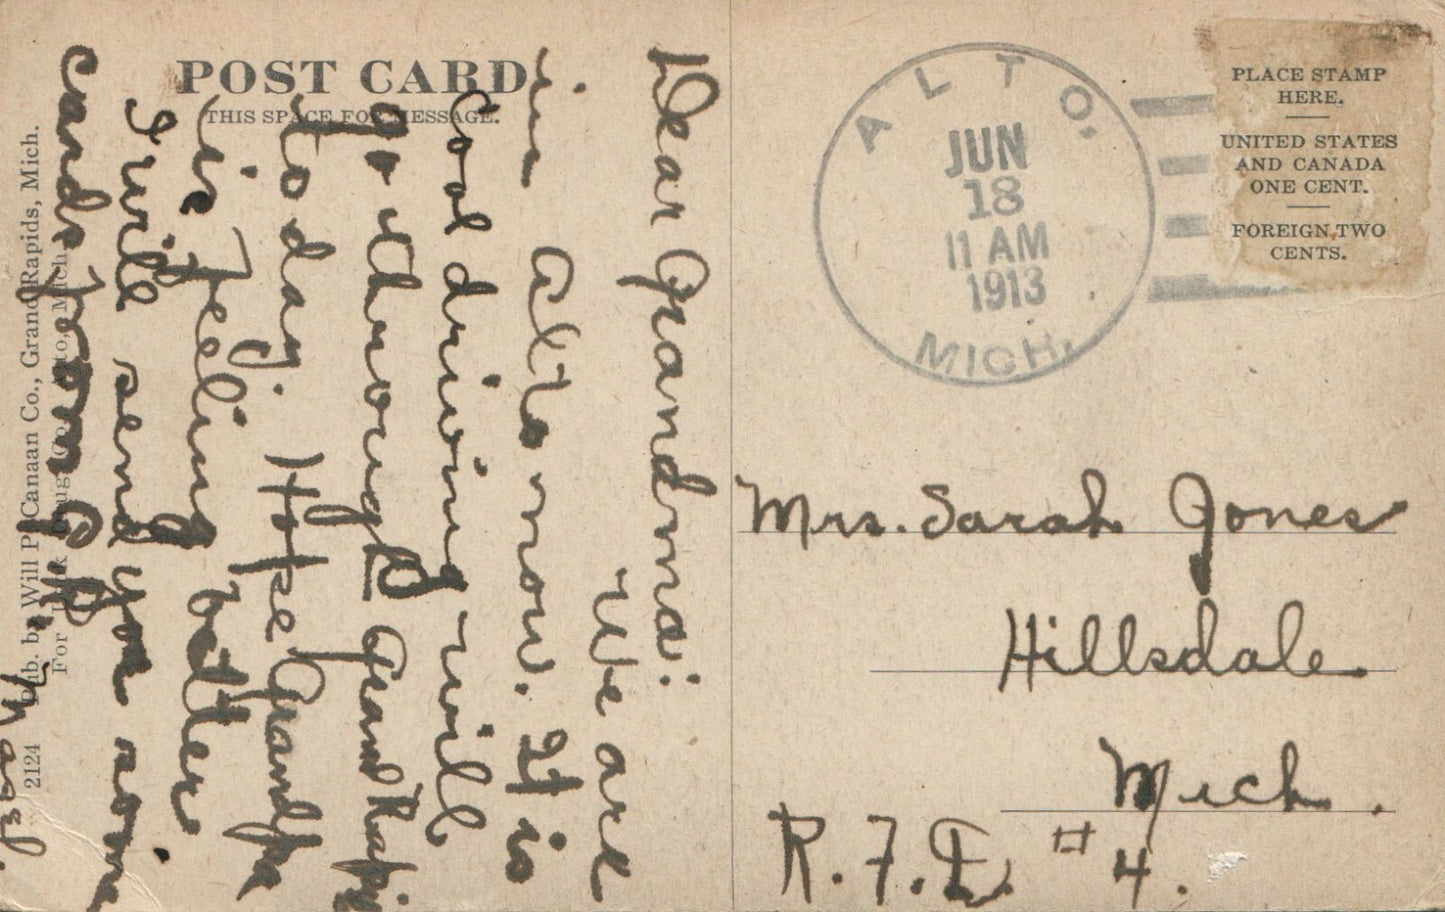 POST CARD
THIS SPACE FOR MESSAGE.
Dear Grandma:
We are
in Alto now. It is
cool driving will
go through Grand Rapids
today. Hope Grandpa
is feeling better
I will send you some
cards from G.R.
Pub. by Will P. Canaan Co., Grand Rapids, Mich.
2124
ALTO,
JUN
18
11 AM
1913
MICH.
PLACE STAMP
HERE.
UNITED STATES
AND CANADA
ONE CENT.
FOREIGN, TWO
CENTS.
Mrs. Sarah Jones
Hillsdale
Mich.
R.F.D. #4.